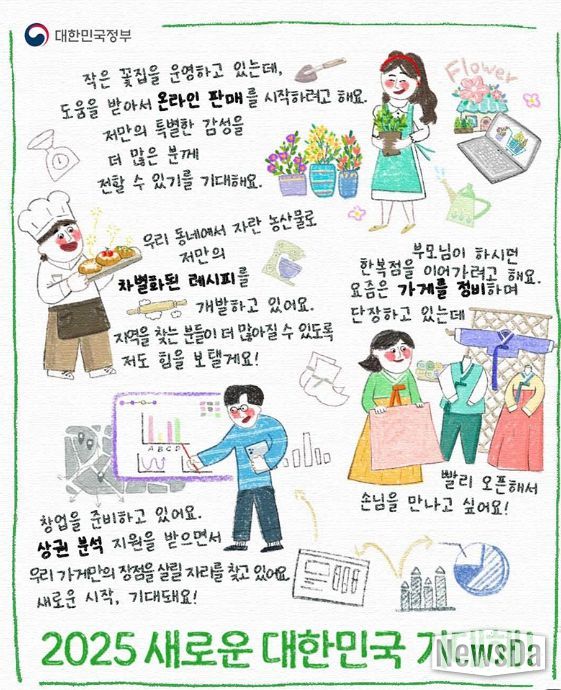 대한민국정부
작은 꽃집을 운영하고 있는데,
도움을 받아서 온라인 판매를 시작하려고 해요.
저만의 특별한 감성을
더 많은 분께
전할 수 있기를 기대해요.
Flower
우리 동네에서 자란 농산물로
저만의
차별화된 레시피를
개발하고 있어요.
지역을 찾는 분들이 더 많아질 수 있도록
저도 힘을 보탤게요!
부모님이 하시던
한복점을 이어가려고 해요.
요즘은 가게를 정비하며
단장하고 있는데
빨리 오픈해서
손님을 만나고 싶어요!
A B C D
창업을 준비하고 있어요.
상권 분석 지원을 받으면서
우리 가게만의 장점을 살릴 자리를 찾고 있어요
새로운 시작, 기대돼요!
2025 새로운 대한민국
NewsDa